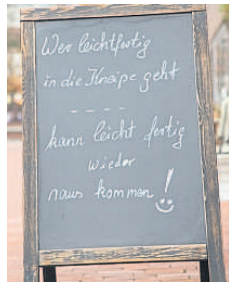 Wer leichtfertig
in die Kneipe geht
- - - -
kann leicht fertig
wieder
raus kommen!